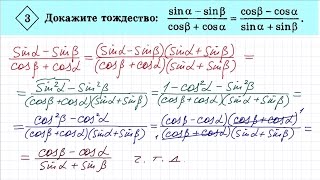 3 Докажите тождество: (sinα − sinβ)/(cosβ + cosα) = (cosβ − cosα)/(sinα + sinβ).
(Sinα − Sinβ)/(cosβ + cosα) = (Sinα − Sinβ)(Sinα + Sinβ)/(cosβ + cosα)(Sinα + Sinβ) =
= (Sin²α − Sin²β)/(cosβ + cosα)(Sinα + Sinβ) = (1 − cos²α − Sin²β)/(cosβ + cosα)(Sinα + Sinβ) =
= (cos²β − cos²α)/(cosβ + cosα)(Sinα + Sinβ) = (cosβ − cosα)(cosβ + cosα)¹/(cosβ + cosα)(Sinα + Sinβ) =
= (cosβ − cosα)/(Sinα + Sinβ) ч. т. д.